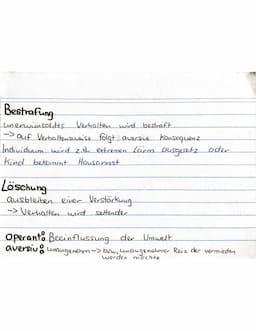 Bestrafung
unerwünschtes Verhalten wird bestraft
-> auf Verhaltensweise folgt aversive Konsequenz
Individuum wird z.B. extremen Lärm ausgesetz oder
Kind bekommt Hausarrest
Löschung
ausbleiben einer Verstärkung
-> Verhalten wird seltender
operant: Beeinflussung der Umwelt
aversiv: unangenehm -> bzw. unangenehmer Reiz der vermieden
werden möchte